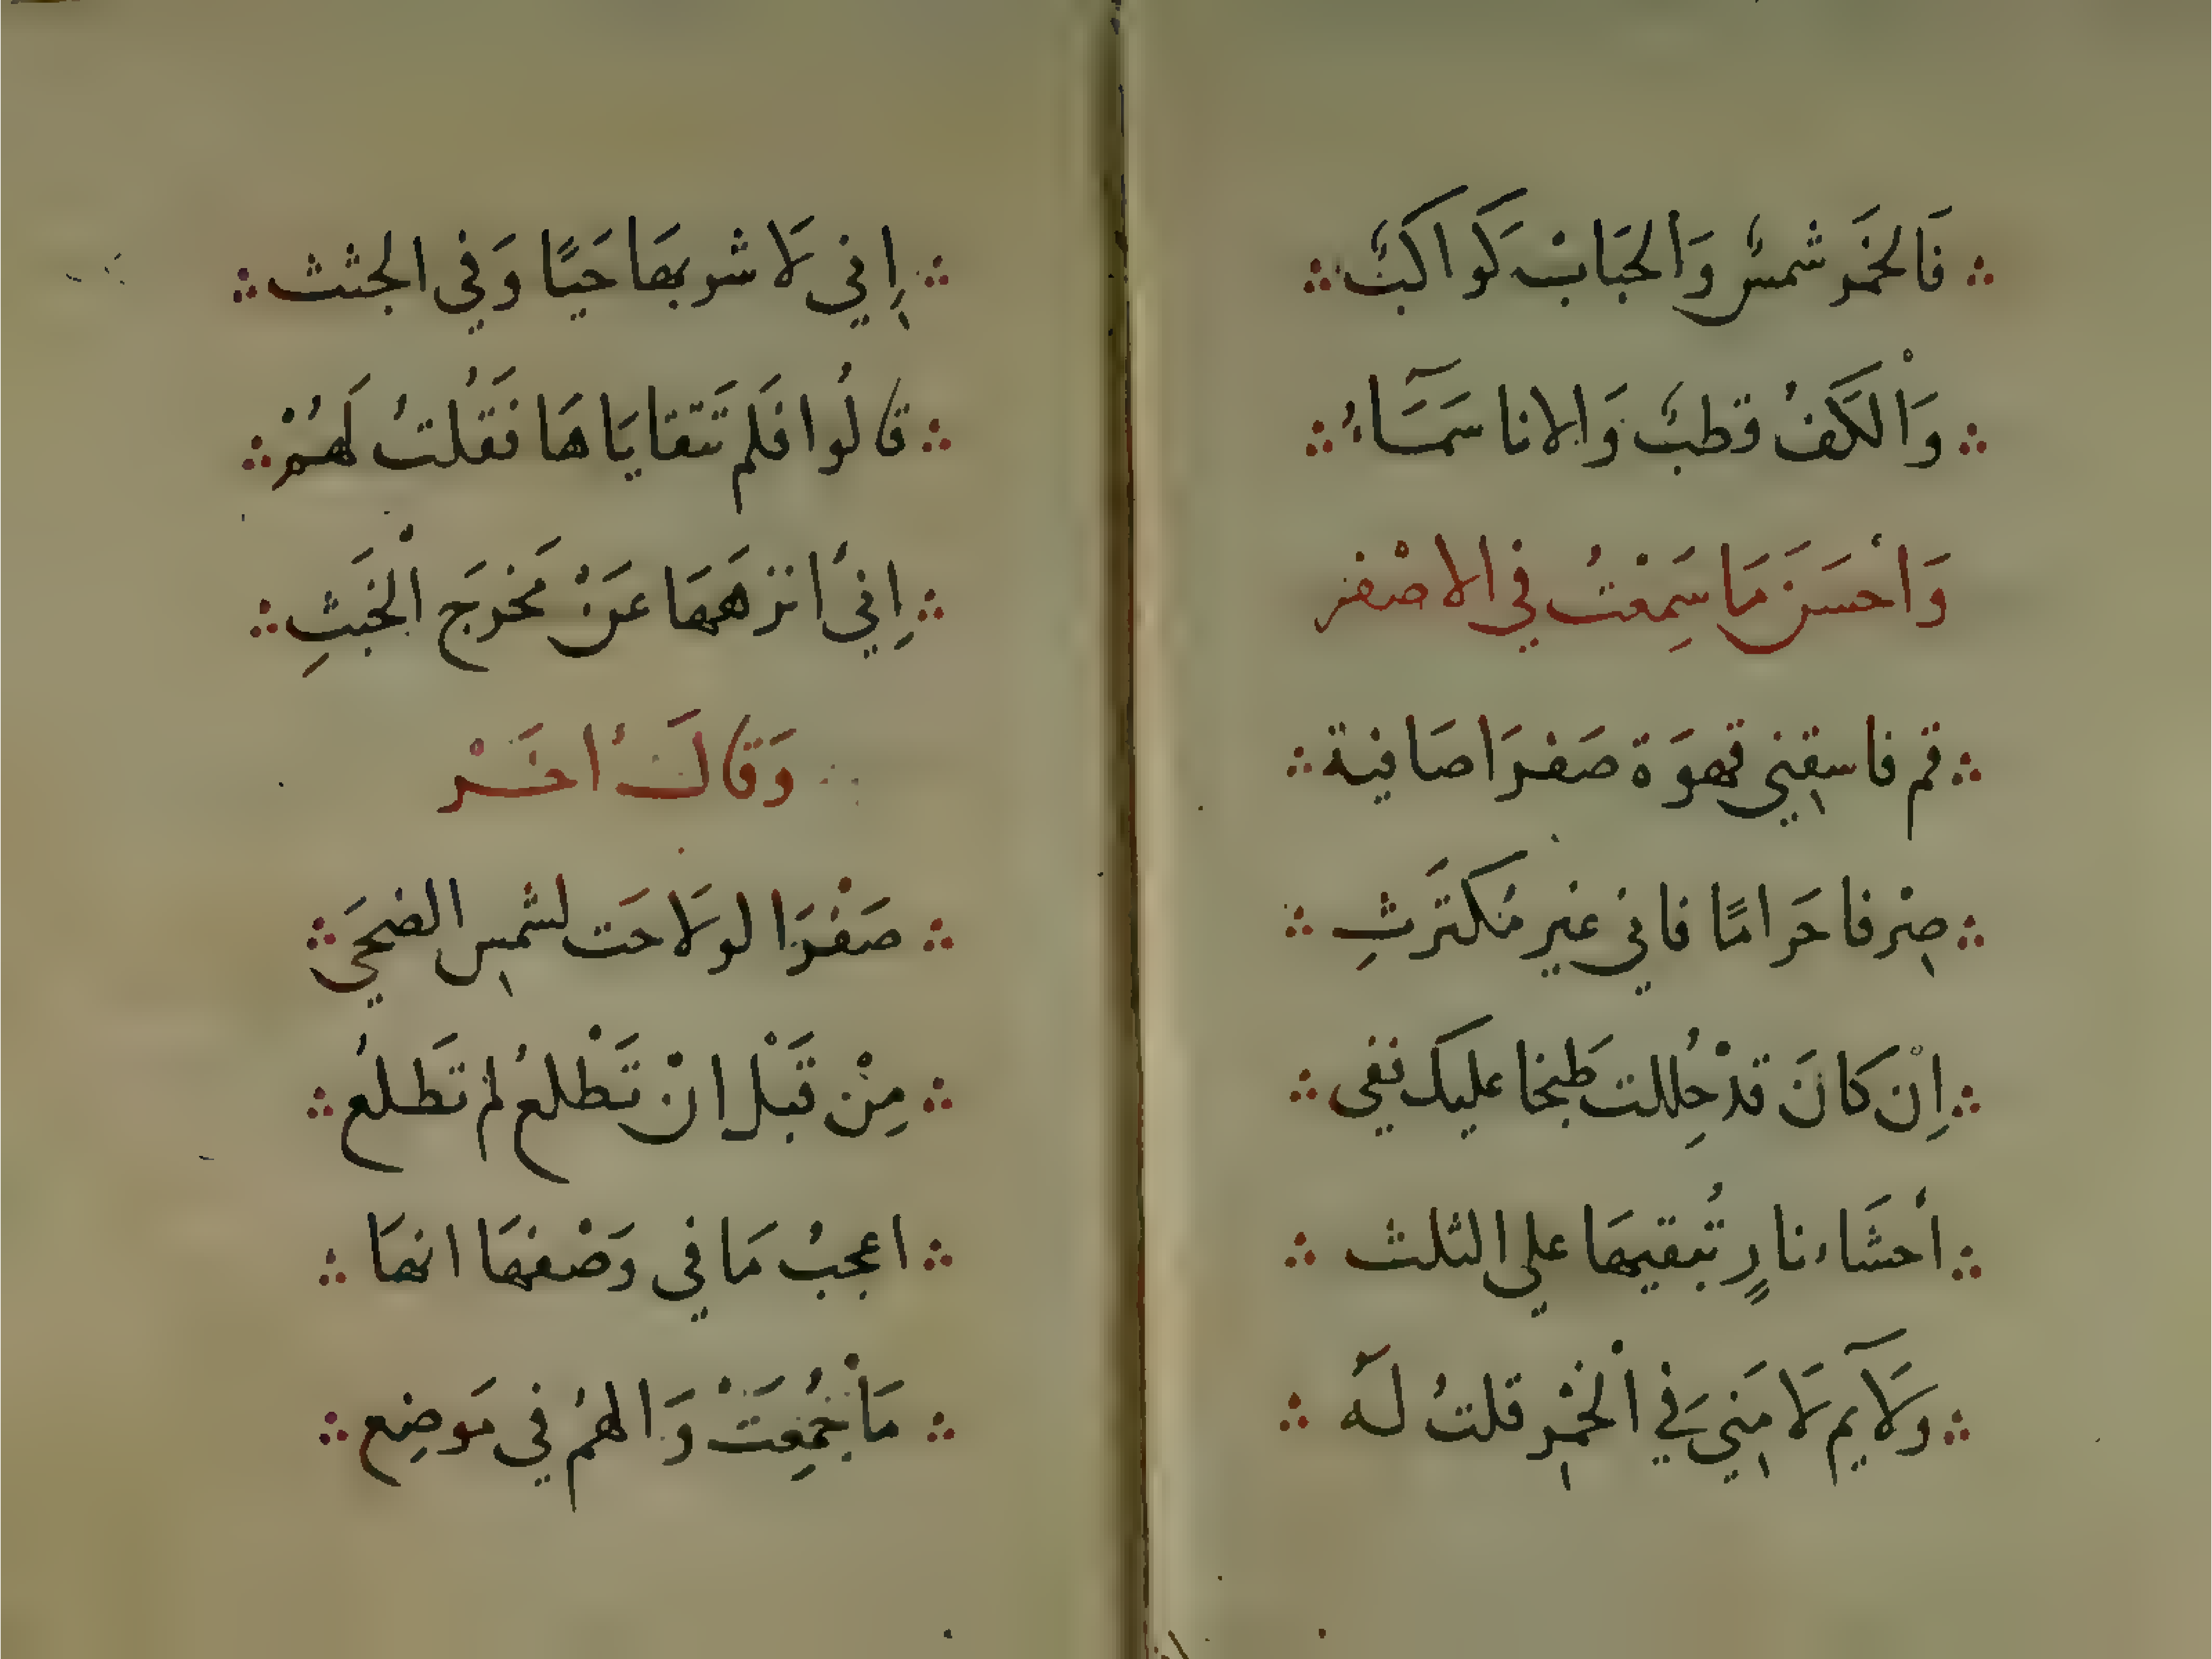 فَالخَمَر شمسٌ وَالحَبَابْ كَواكبٌ
وَاْلكَفُ قطبٌ وَالانا سَمَآءُ
وَاحْسَنَ مَا سَمِعْتُ في الاصْفر
قم فاسقِني قهوَة صَفرَا صَافية
صِرْفا حَرامًا فاني غير مُكترَثِ
اِنْ كانَ قدْ حُلِلت طبخا عليك ففي
أحشَاء نارٍ تُبقيهَا علي الثلث
ولَآيم لَا مَنِيَ في اْلخمْرِ قلتُ لهَ
اِني لَاشربهَا حَيًا وَفي الجثث
قالُوا فَلم تَتقايَاهَا فَقُلتُ لَهُمْ
اِنيَ انزهَهَا عَنْ مَخرَج اْلخَبَثِ
وَقالَ اُخَرْ
صَفْرَا لو لَاحَت لشمسِ الضحَي
مِنْ قَبْل انْ تَطْلعُ لم تَطلعُ
اعجبُ مَا في وَصْفهَا انهَا
مَاْ جُمِعَتْ وَالهمُ في مَوضِع